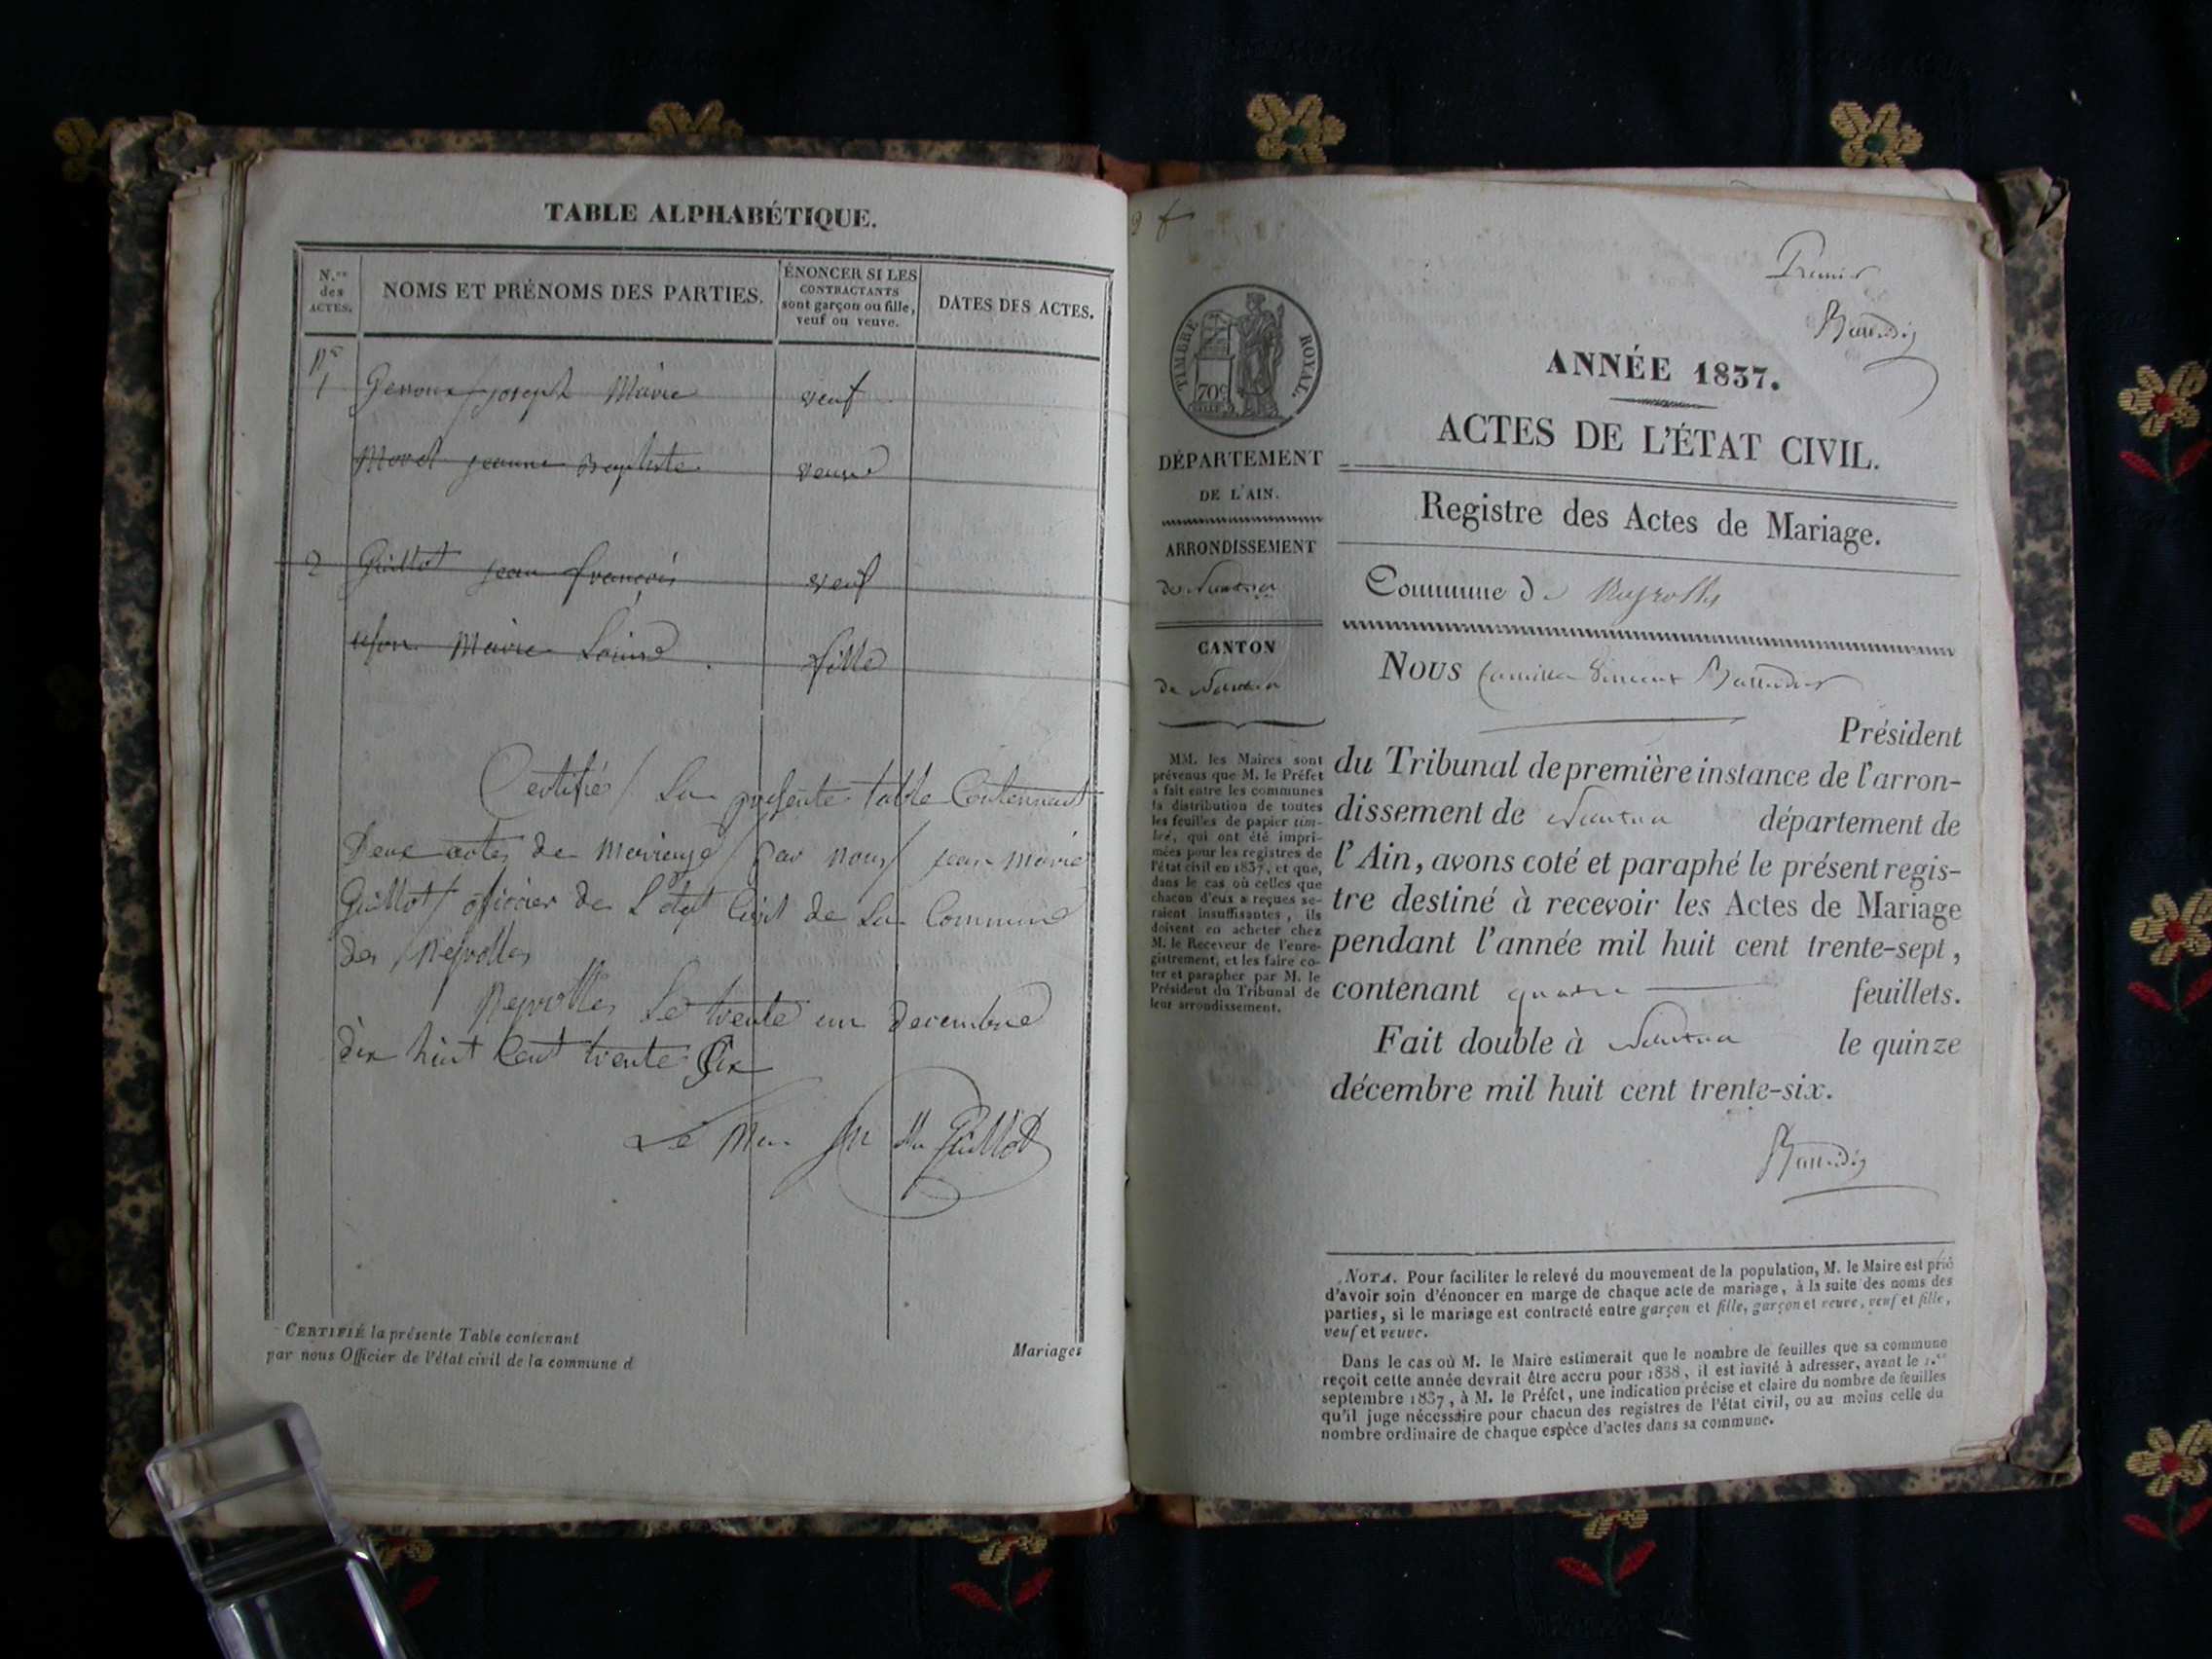 TABLE ALPHABÉTIQUE.
N.os des ACTES.
NOMS ET PRÉNOMS DES PARTIES.
ÉNONCER SI LES CONTRACTANTS sont garçon ou fille, veuf ou veuve.
DATES DES ACTES.
1 joseph Marie veuf
jeanne Baptiste veuve
2 Guillot jean françois veuf
Marie Louise fille
Certifié La presente table Contennant
Deux actes de Mariage par nous jean marie
Guillot officier de L'état Civil de La Commune
de Neyrolles
Neyrolles Le trente un decembre
dix huit Cent trente Six
Le Mre Jn Me Guillot
CERTIFIÉ la présente Table contenant
Mariages
par nous Officier de l'état civil de la commune d
Premier
TIMBRE ROYAL.
70c
ANNÉE 1837.
ACTES DE L'ÉTAT CIVIL.
DÉPARTEMENT
DE L'AIN.
ARRONDISSEMENT
de Nantua
CANTON
de Nantua
MM. les Maires sont
prévenus que M. le Préfet
a fait entre les communes
la distribution de toutes
les feuilles de papier tim-
bré, qui ont été impri-
mées pour les registres de
l'état civil en 1837, et que,
dans le cas où celles que
chacun d'eux a reçues se-
raient insuffisantes, ils
doivent en acheter chez
M. le Receveur de l'enre-
gistrement, et les faire co-
ter et parapher par M. le
Président du Tribunal de
leur arrondissement.
Registre des Actes de Mariage.
Commune de Neyrolles
Nous Camille Vincent
Président
du Tribunal de première instance de l'arron-
dissement de Nantua département de
l'Ain, avons coté et paraphé le présent regis-
tre destiné à recevoir les Actes de Mariage
pendant l'année mil huit cent trente-sept,
contenant quatre feuillets.
Fait double à Nantua le quinze
décembre mil huit cent trente-six.
NOTA. Pour faciliter le relevé du mouvement de la population, M. le Maire est prié
d'avoir soin d'énoncer en marge de chaque acte de mariage, à la suite des noms des
parties, si le mariage est contracté entre garçon et fille, garçon et veuve, veuf et fille,
veuf et veuve.
Dans le cas où M. le Maire estimerait que le nombre de feuilles que sa commune
reçoit cette année devrait être accru pour 1838, il est invité à adresser, avant le 1.er
septembre 1837, à M. le Préfet, une indication précise et claire du nombre de feuilles
qu'il juge nécessaire pour chacun des registres de l'état civil, ou au moins celle du
nombre ordinaire de chaque espèce d'actes dans sa commune.